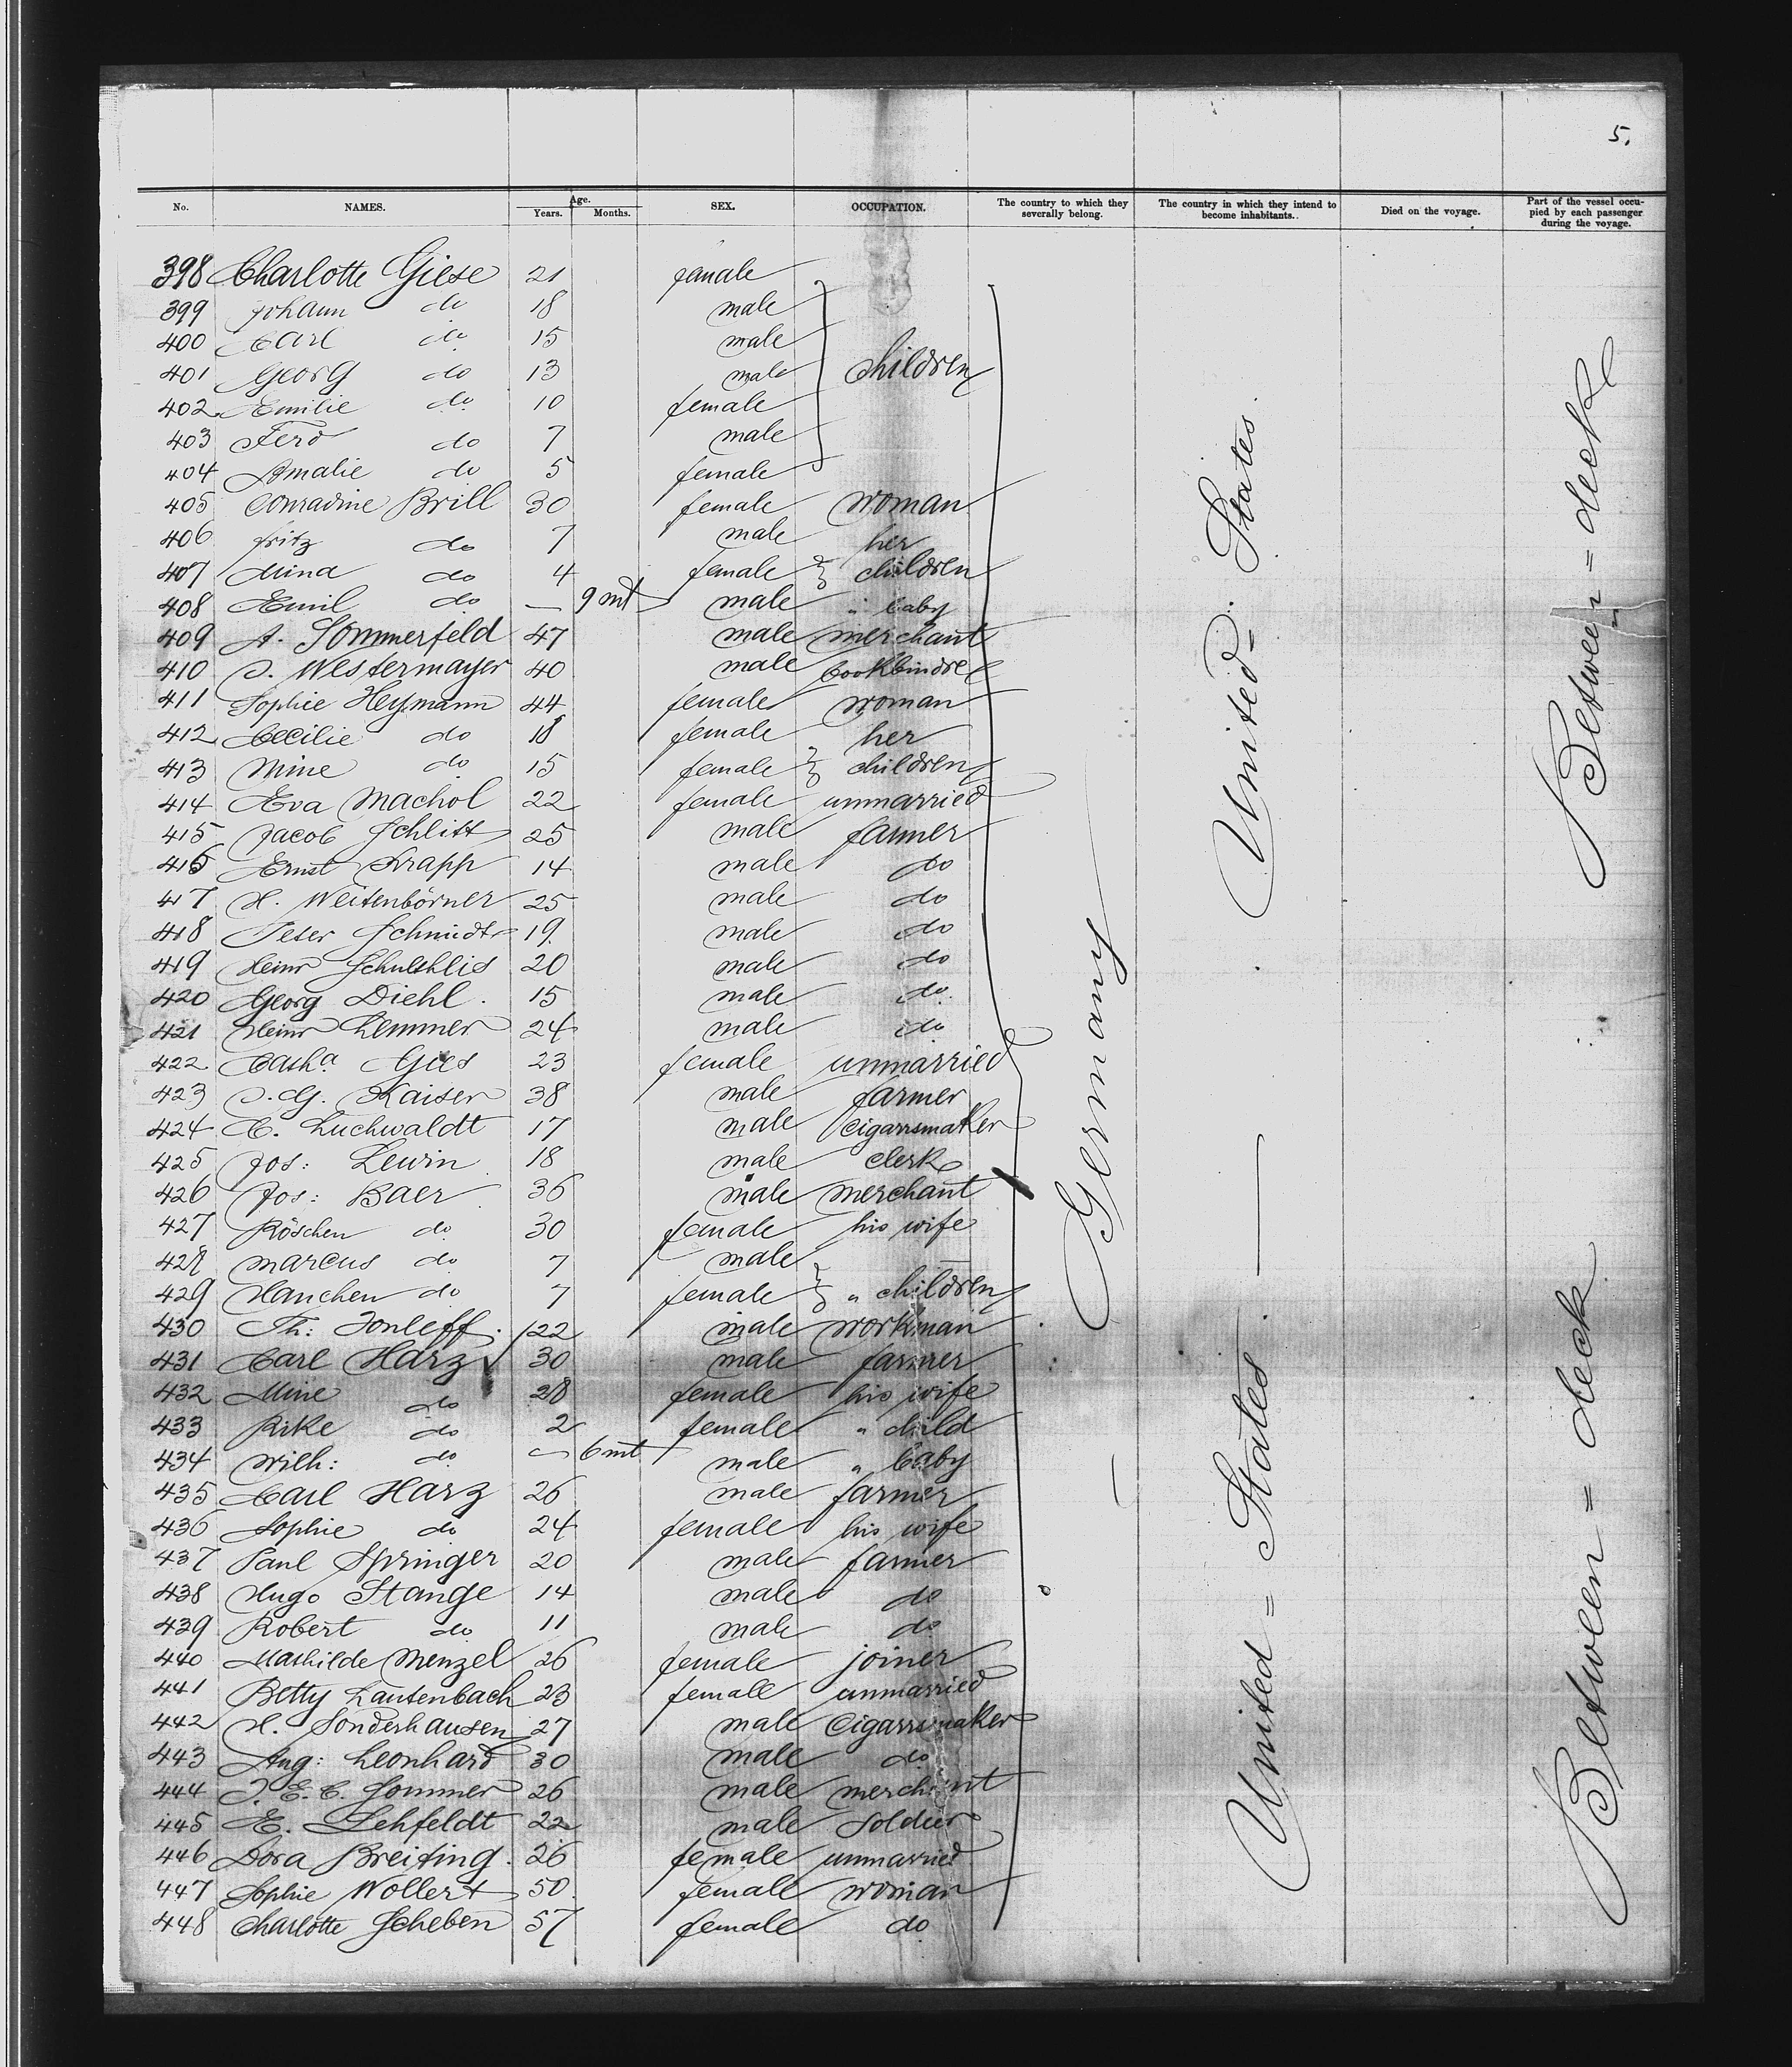 5.
No. NAMES. Age. Years. Months. SEX. OCCUPATION. The country to which they severally belong. The country in which they intend to become inhabitants. Died on the voyage. Part of the vessel occupied by each passenger during the voyage.
398 Charlotte Giese 21 female
399 Johann do 18 male
400 Carl do 15 male
401 Georg do 13 male children
402 Emilie do 10 female
403 Ferd do 7 male
404 Amalie do 5 female
405 Conradine Brill 30 female woman
406 Fritz do 7 male her
407 Mina do 4 female children
408 Emil do — 9 mt male " baby
409 A. Sommerfeld 47 male merchant
410 J. Westermayer 40 male bookbinder
411 Sophie Heymann 44 female woman
412 Cecilie do 18 female her
413 Mine do 15 female children
414 Eva Machol 22 female unmarried
415 Jacob Schlitt 25 male farmer
416 Ernst Krapp 14 male do
417 H. Weitenbörner 25 male do
418 Peter Schmidt 19. male do
419 Heinr 20 male do
420 Georg Diehl. 15 male do
421 Heinr Lemmer 24 male do
422 Cath.a Gies 23 female unmarried
423 J. G. Kaiser 38 male farmer
424 C. Luchwaldt 17 male Cigarrsmaker
425 Jos: Lewin 18 male clerk
426 Jos: Baer 36 male merchant
427 Röschen do 30 female his wife
428 Marcus do 7 male
429 Hanchen do 7 female " children
430 Th: Tonleff. 22 male workman
431 Carl Harz 30 male farmer
432 Mine do 28 female his wife
433 Rike do 2 female " child
434 Wilh: do — 6 mt male " baby
435 Carl Harz 26 male farmer
436 Sophie do 24 female his wife
437 Paul Springer 20 male farmer
438 Hugo Stange 14 male do
439 Robert do 11 male do
440 Mathilde Menzel 26 female joiner
441 Betty Lautenbach 23 female unmarried
442 H. Sonderhausen 27 male Cigarrsmaker
443 Aug: Leonhard 30 male do
444 J. E. C. Sommer 26 male merchant
445 E. Lehfeldt 22 male Soldier
446 Dora Breiting. 26 female unmarried
447 Sophie Wollert 50 female woman
448 Charlotte Scheben 57 female do
Germany
United = States.
United = States
Between = deck
Between = deck